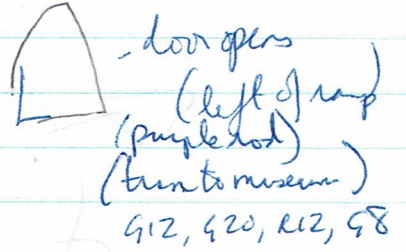 - door opens
(left of ramp
(purple rod)
(turn to museum)
G12, G20, R12, G8